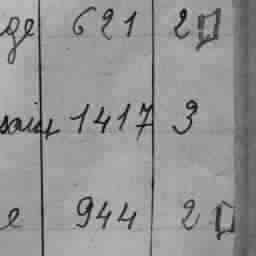 ge 621 2
1417 3
e 944 2